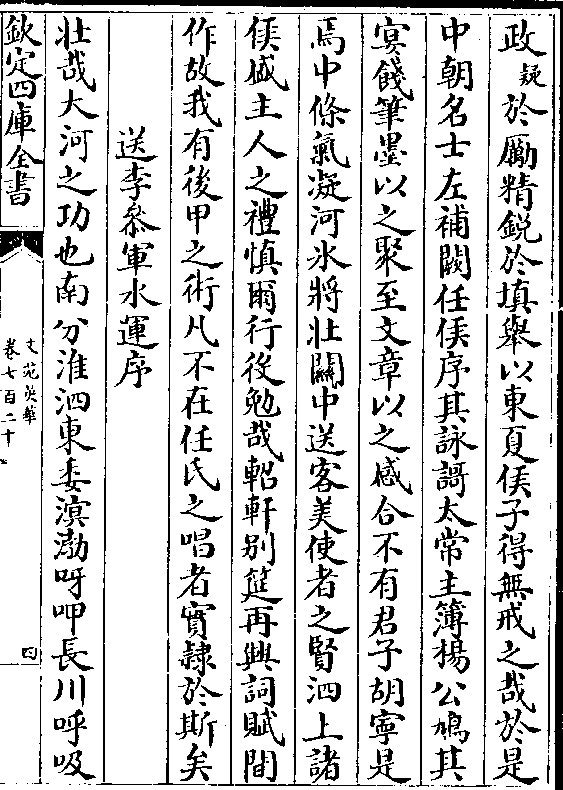 政疑於勵精銳於填舉以東夏侯子得無戒之哉於是
中朝名士左補闕任侯序其詠謌太常主簿楊公鳩其
宾餞筆墨以之聚至文章以之感合不有君子胡寧是
焉中條氣凝河氷將壯關中送客美使者之賢泗上諸
侯感主人之禮慎爾行役勉哉軺軒别筵再興詞賦間
作故我有後甲之術凡不在任氏之唱者實隷於斯矣
送李叅軍水運序
壯哉大河之功也南分淮泗東委溟渤呀呷長川呼吸
欽定四庫全書
文苑英華
卷七百二十
四